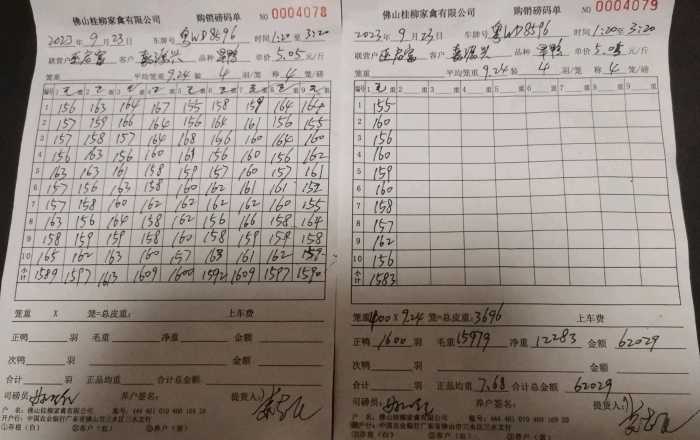 佛山桂柳家禽有限公司 购销磅码单 NO 0004078
2023年9月23日 车牌号 粤WD8596 时间1:20至3:20
联营户 客户 品种 单价 5.05元/斤
笼重 平均笼重9.24装 4 羽/笼 称 4 笼/磅
编号 1 重 2 重 3 重 4 重 5 重 6 重 7 重 8 重 9 重
1 156 163 164 167 155 158 159 164 164
2 157 159 166 164 156 164 161 156 155
3 157 158 157 164 168 156 160 164 160
4 156 163 156 160 161 156 160 156 162
5 163 163 161 158 159 157 160 157 161
6 157 156 163 158 160 162 161 161 158
7 157 158 160 162 162 162 162 160 155
8 163 156 164 158 162 156 166 158 164
9 158 159 159 158 160 158 159 159 158
10 165 162 163 160 157 163 161 162
小计 1589 1597 1613 1609 1600 1592 1609 1597 1590
笼重 X 笼=总皮重: 上车费
正鸭 羽 毛重 净重 金额
次鸭 羽 金额
合计 羽 正品均重 合计总金额
司磅员: 养户签名: 提货人:
户 名:佛山桂柳家禽有限公司 账号:
开户行:中国农业银行广东省佛山市三水区三水支行
①存根(白) ②客户(红) ③养户(黄)
佛山桂柳家禽有限公司 购销磅码单 NO 0004079
2023年9月23日 车牌号 粤WD8596 时间1:20至3:20
联营户 客户 品种 单价 5.05元/斤
笼重 平均笼重9.24装 4 羽/笼 称 4 笼/磅
编号 1 重 2 重 3 重 4 重 5 重 6 重 7 重 8 重 9 重
1 155
2 160
3 156
4 160
5 159
6 160
7 158
8 157
9 162
10 156
小计 1583
笼重400 X 9.24 笼=总皮重:3696 上车费
正鸭 1600 羽 毛重15979 净重 12283 金额 62029
次鸭 羽 金额
合计 羽 正品均重 7.68 合计总金额 62029
司磅员: 养户签名: 提货人:
户 名:佛山桂柳家禽有限公司 账号:
开户行:中国农业银行广东省佛山市三水区三水支行
①存根(白) ②客户(红) ③养户(黄)